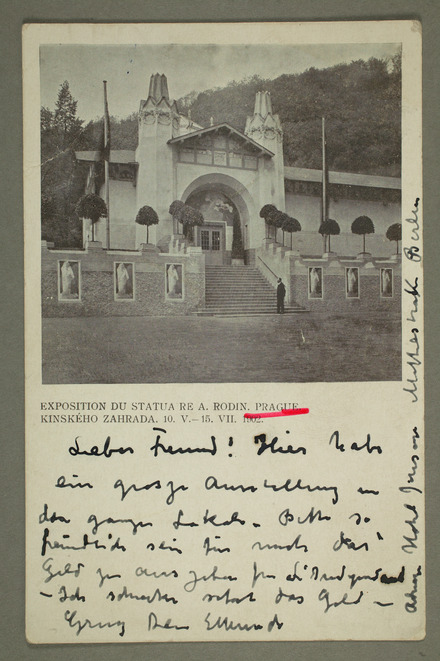 EXPOSITION DU STATUA RE A. RODIN. PRAGUE
KINSKÉHO ZAHRADA. 10. V.—15. VII. 1902.
Lieber Freund! Hier habe
ein grosze Ausstellung in
den ganzen Lokale. Bitte so
freundlich sein für mich das
Geld zu aus geben für
– Ich schicke sofort das Geld –
Gruss Dein
Hotel Berlin